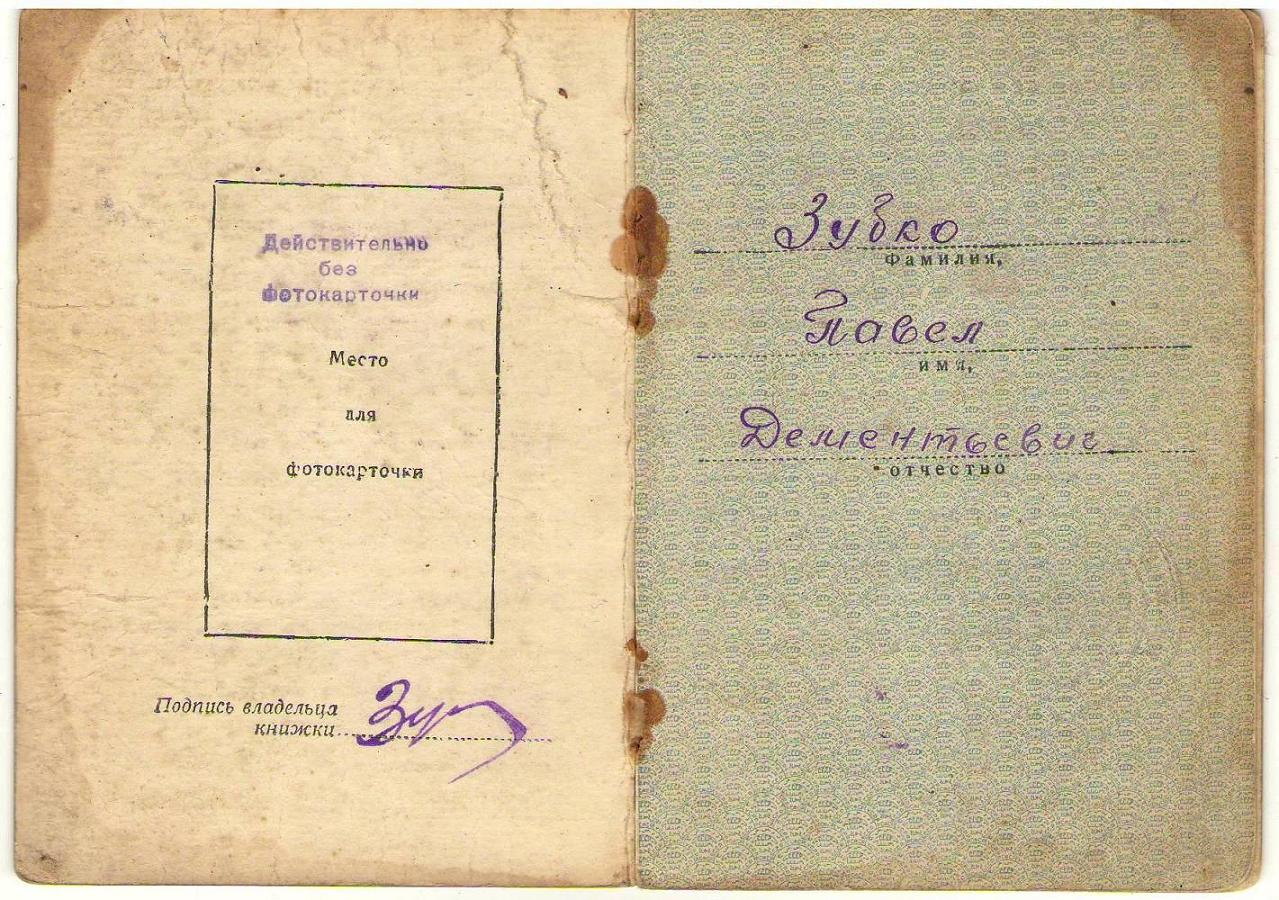 Действительно
без
фотокарточки
Место
для
фотокарточки
Подпись владельца
книжки Зуб
Зубко
Фамилия,
Павел
имя,
Дементьевич
отчество